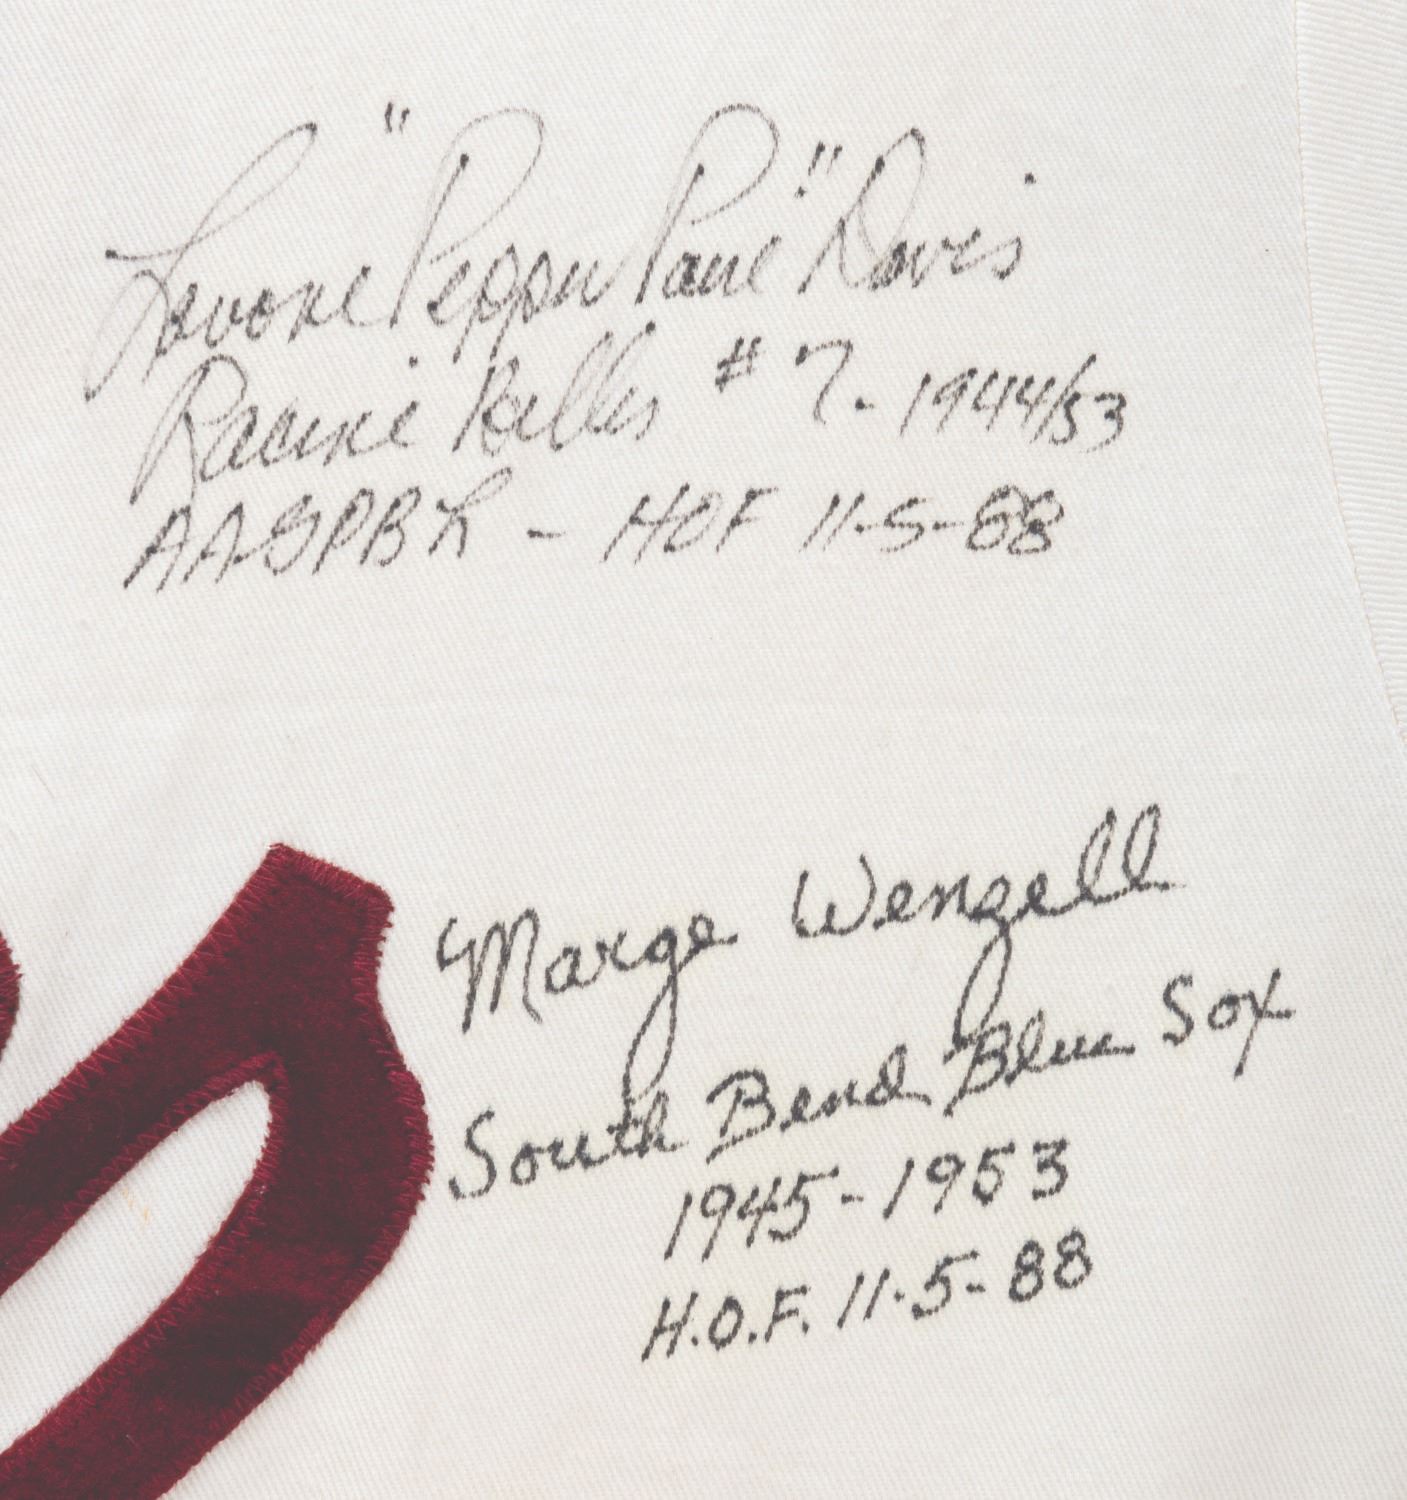 Lavone "Pepper Paire" Davis
Racine Belles #7-1944/53
AAGPBL - HOF 11-5-88
Marge Wenzell
South Bend Blue Sox
1945-1953
H.O.F. 11-5-88